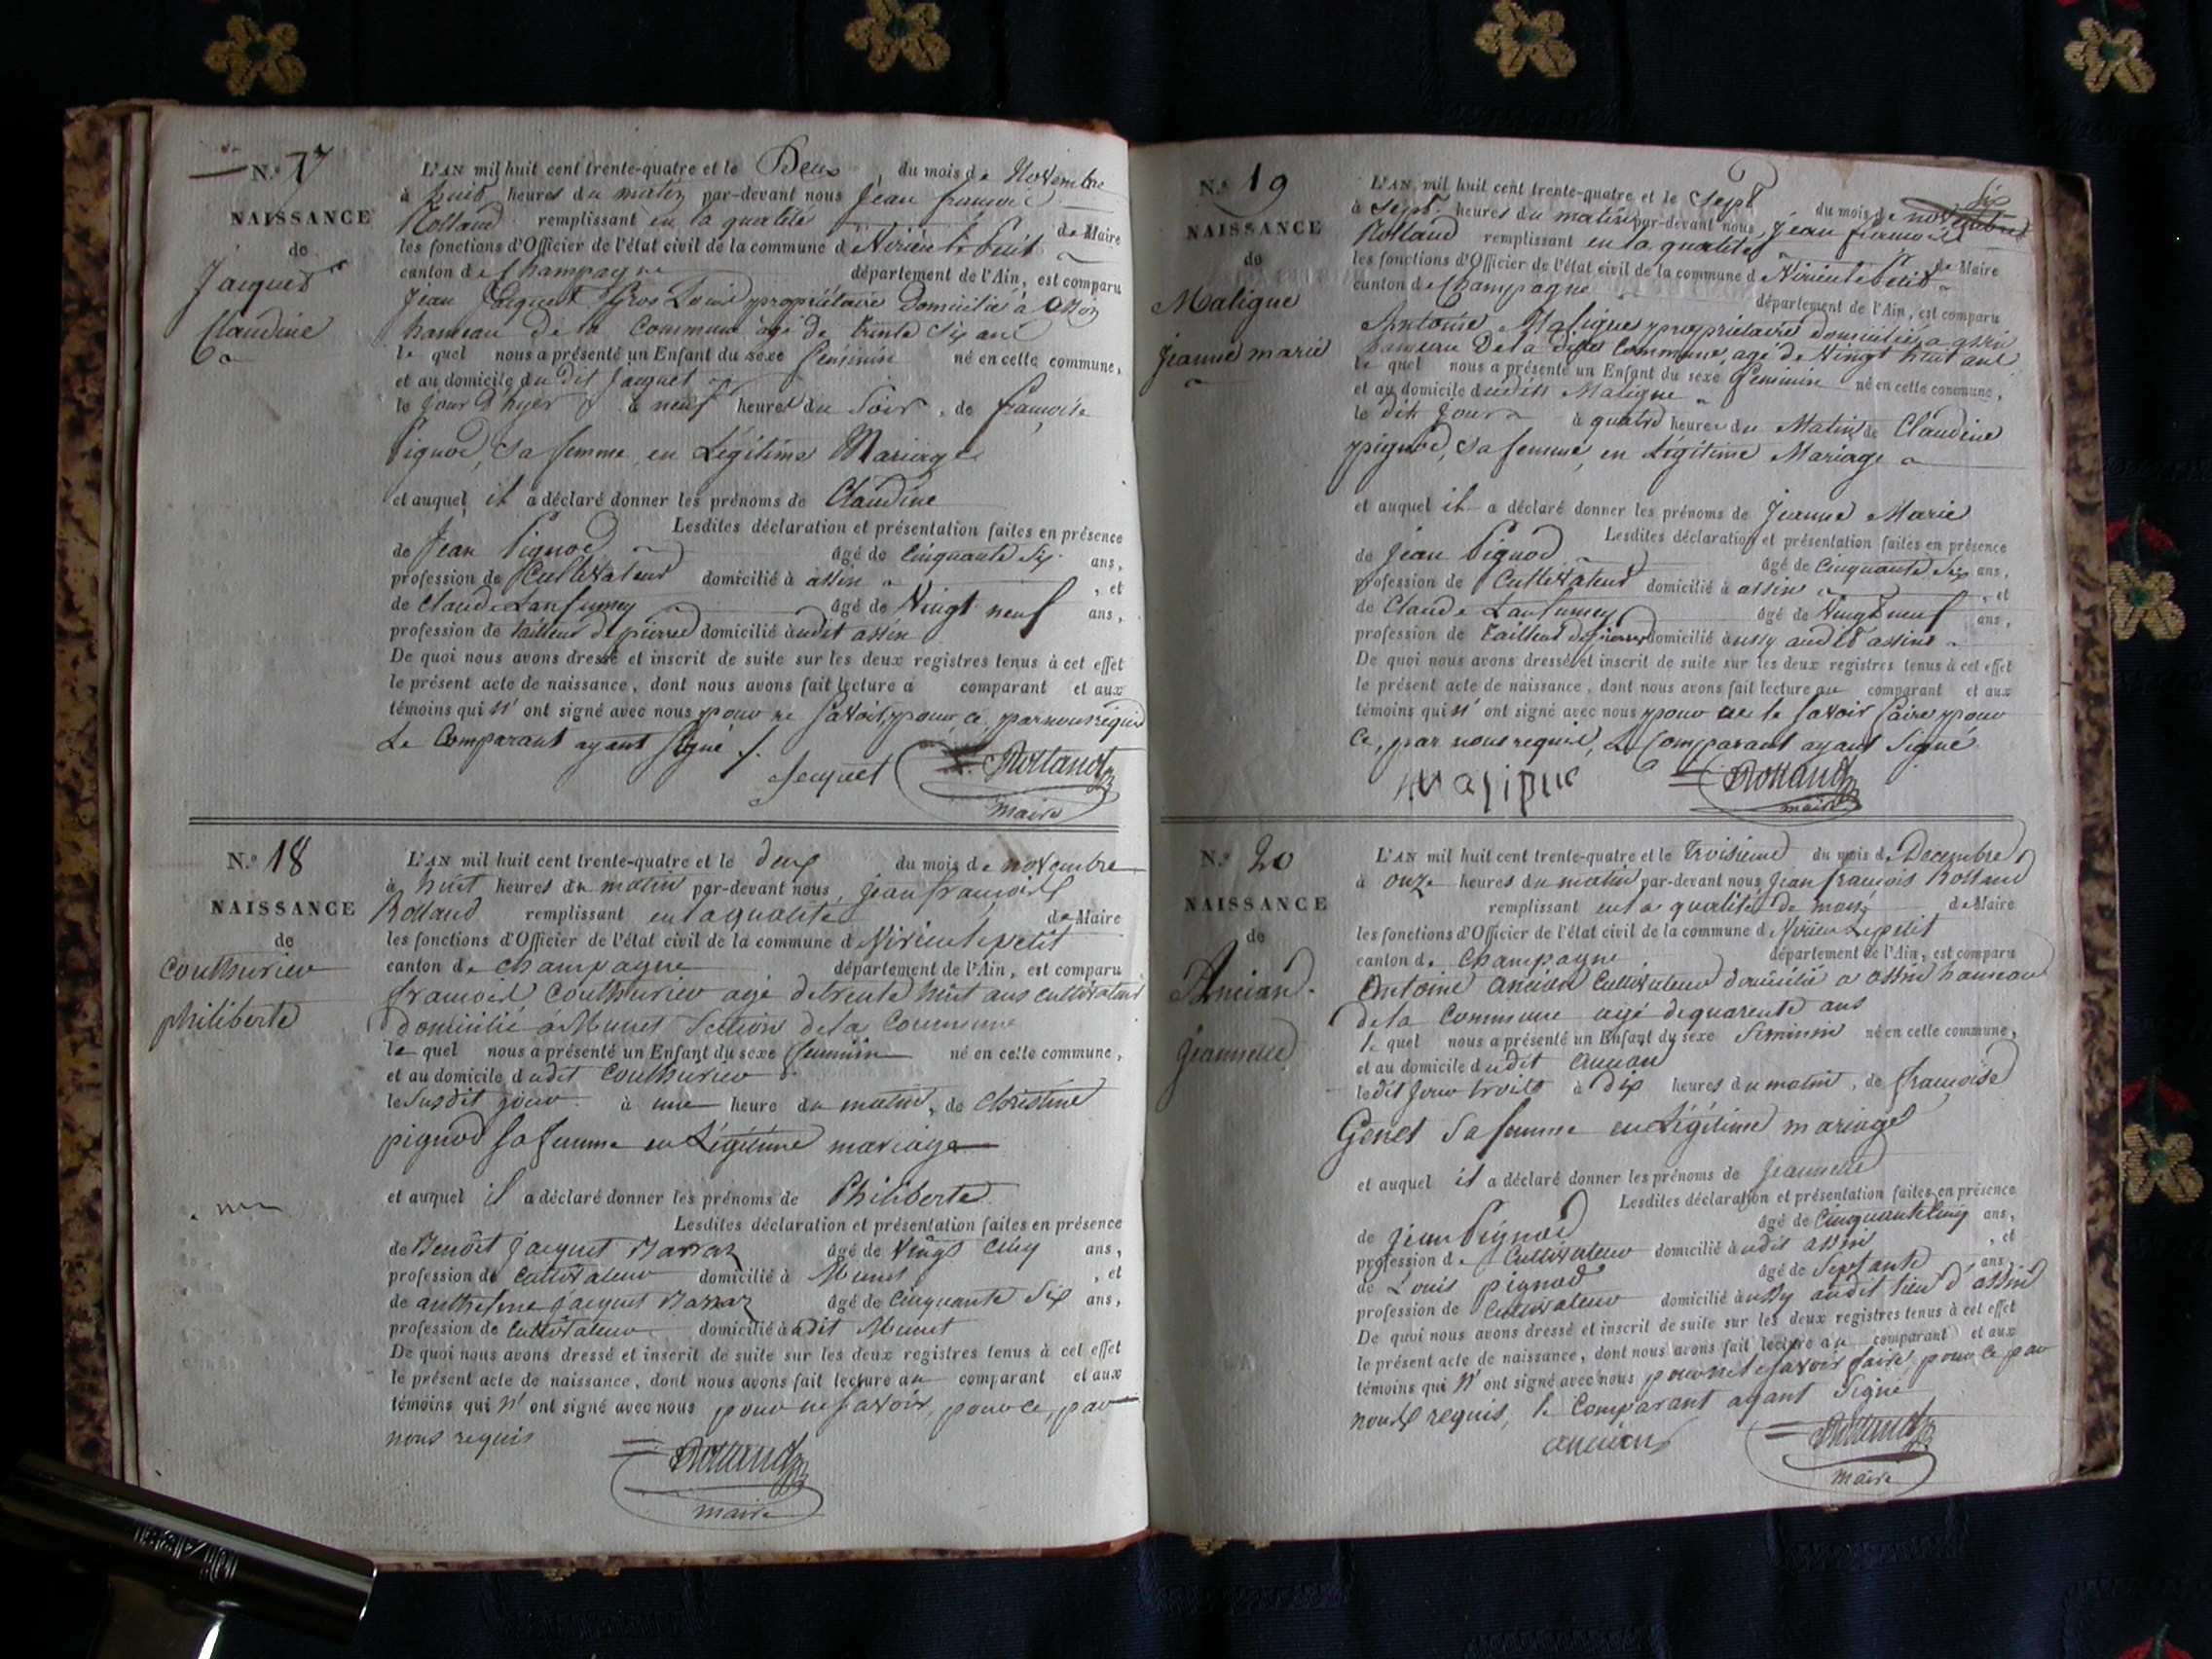 N.° 17
NAISSANCE
de
Jacquet
Claudine
L'AN mil huit cent trente-quatre et le Deux, du mois de Novembre
à huit heures du matin par-devant nous Jean françois
Rolland remplissant en la qualité de Maire
les fonctions d'Officier de l'état civil de la commune de Virieu le Petit
canton de Champagne département de l'Ain, est comparu
Jean Jacquet Gros Louis propriétaire Domicilié à assin
hameau De la Commune agé de trente Six ans
le quel nous a présenté un Enfant du sexe féminin né en cette commune,
et au domicile du dit Jacquet
le Jour D'hyer à neuf heures du Soir, de françoise
Pignod, sa femme, en Légitime Mariage
et auquel il a déclaré donner les prénoms de Claudine
Lesdites déclaration et présentation faites en présence
de Jean Pignod âgé de Cinquante Six ans,
profession de Cultivateur domicilié à assin, et
de Claude Lanfumey âgé de Vingt neuf ans,
profession de tailleur de pierre domicilié audit assin
De quoi nous avons dressé et inscrit de suite sur les deux registres tenus à cet effet
le présent acte de naissance, dont nous avons fait lecture a comparant et aux
témoins qui n'ont signé avec nous pour ne Savoir, pour ce, par nous requis
Le Comparant ayant Signé /.
Jacquet Rolland
maire
N.° 18
NAISSANCE
de
Couthurieu
philiberte
L'AN mil huit cent trente-quatre et le deux du mois de novembre
à huit heures du matin par-devant nous, jean françois
Rolland remplissant en la qualité de Maire
les fonctions d'Officier de l'état civil de la commune de Virieu le petit
canton de champagne département de l'Ain, est comparu
françois Couthurieu agé de trente huit ans cultivateur
domicilié à Munet Section de la Commune
le quel nous a présenté un Enfant du sexe feminin né en cette commune,
et au domicile dudit Couthurieu
le Susdit jour à une heure du matin, de Christine
pignod sa femme en Légitime mariage
et auquel il a déclaré donner les prénoms de Philiberte
Lesdites déclaration et présentation faites en présence
de Benoit jacquet Barraz âgé de Vingt Cinq ans,
profession de Cultivateur domicilié à Munet, et
de anthelme jacquet Barraz âgé de Cinquante Six ans,
profession de Cultivateur domicilié à dit Munet
De quoi nous avons dressé et inscrit de suite sur les deux registres tenus à cet effet
le présent acte de naissance, dont nous avons fait lecture au comparant et aux
témoins qui n'ont signé avec nous pour ne Savoir, pour ce, par
nous requis
Rolland
maire
N.° 19
NAISSANCE
de
Maligue
Jeanne marie
L'AN mil huit cent trente-quatre et le Sept du mois de novembre
à Sept heures du matin par-devant nous Jean françois
Rolland remplissant en la qualité de Maire
les fonctions d'Officier de l'état civil de la commune de Virieu le Petit
canton de Champagne département de l'Ain, est comparu
Antoine Maligue propriétaire domicilié à assin
hameau De la dite Commune, agé de Vingt huit ans
le quel nous a présenté un Enfant du sexe feminin né en cette commune,
et au domicile dudit Maligue
le dit Jour à quatre heures du Matin de Claudine
pignod, sa femme, en Légitime Mariage
et auquel il a déclaré donner les prénoms de Jeanne Marie
Lesdites déclaration et présentation faites en présence
de Jean Pignod âgé de Cinquante Six ans,
profession de Cultivateur domicilié à assin, et
de Claude Lanfumey âgé de Vingt neuf ans,
profession de tailleur de pierre domicilié aussy audit assins
De quoi nous avons dressé et inscrit de suite sur les deux registres tenus à cet effet
le présent acte de naissance, dont nous avons fait lecture au comparant et aux
témoins qui n'ont signé avec nous pour ne le savoir faire pour
Ce, par nous requis, Le Comparant ayant Signé.
maligue Rolland
maire
N.° 20
NAISSANCE
de
Ancian
Jeannette
L'AN mil huit cent trente-quatre et le troisieme du mois de Decembre
à onze heures du matin par-devant nous Jean françois Rolland
remplissant en la qualité de maire de Maire
les fonctions d'Officier de l'état civil de la commune de Virieu Le petit
canton de Champagne département de l'Ain, est comparu
Antoine ancian Cultivateur domicilié a assin hameau
de la Commune agé de quarente ans
le quel nous a présenté un Enfant du sexe feminin né en cette commune,
et au domicile dudit ancian
ledit Jour trois à dix heures du matin, de françoise
Genet sa femme en Légitime mariage
et auquel il a déclaré donner les prénoms de jeannette
Lesdites déclaration et présentation faites en présence
de jean Pignod âgé de Cinquante Cinq ans,
profession de Cultivateur domicilié audit assin, et
de Louis pignod âgé de Septante ans,
profession de Cultivateur domicilié aussy audit lieu d'assin
De quoi nous avons dressé et inscrit de suite sur les deux registres tenus à cet effet
le présent acte de naissance, dont nous avons fait lecture au comparant et aux
témoins qui n'ont signé avec nous pour ne le savoir faire pour ce par
nous requis, le Comparant ayant Signé
ancian Rolland
maire